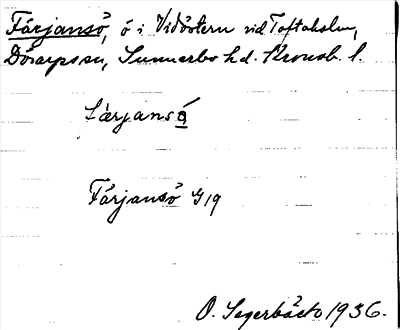 Färjansö, ö i Vidöstern vid Toftaholm,
Dörarps sn, Sunnerbo hd. Kronob. l.
färjansö̱
Färjansö G 19
O. Segerbäck 1936.